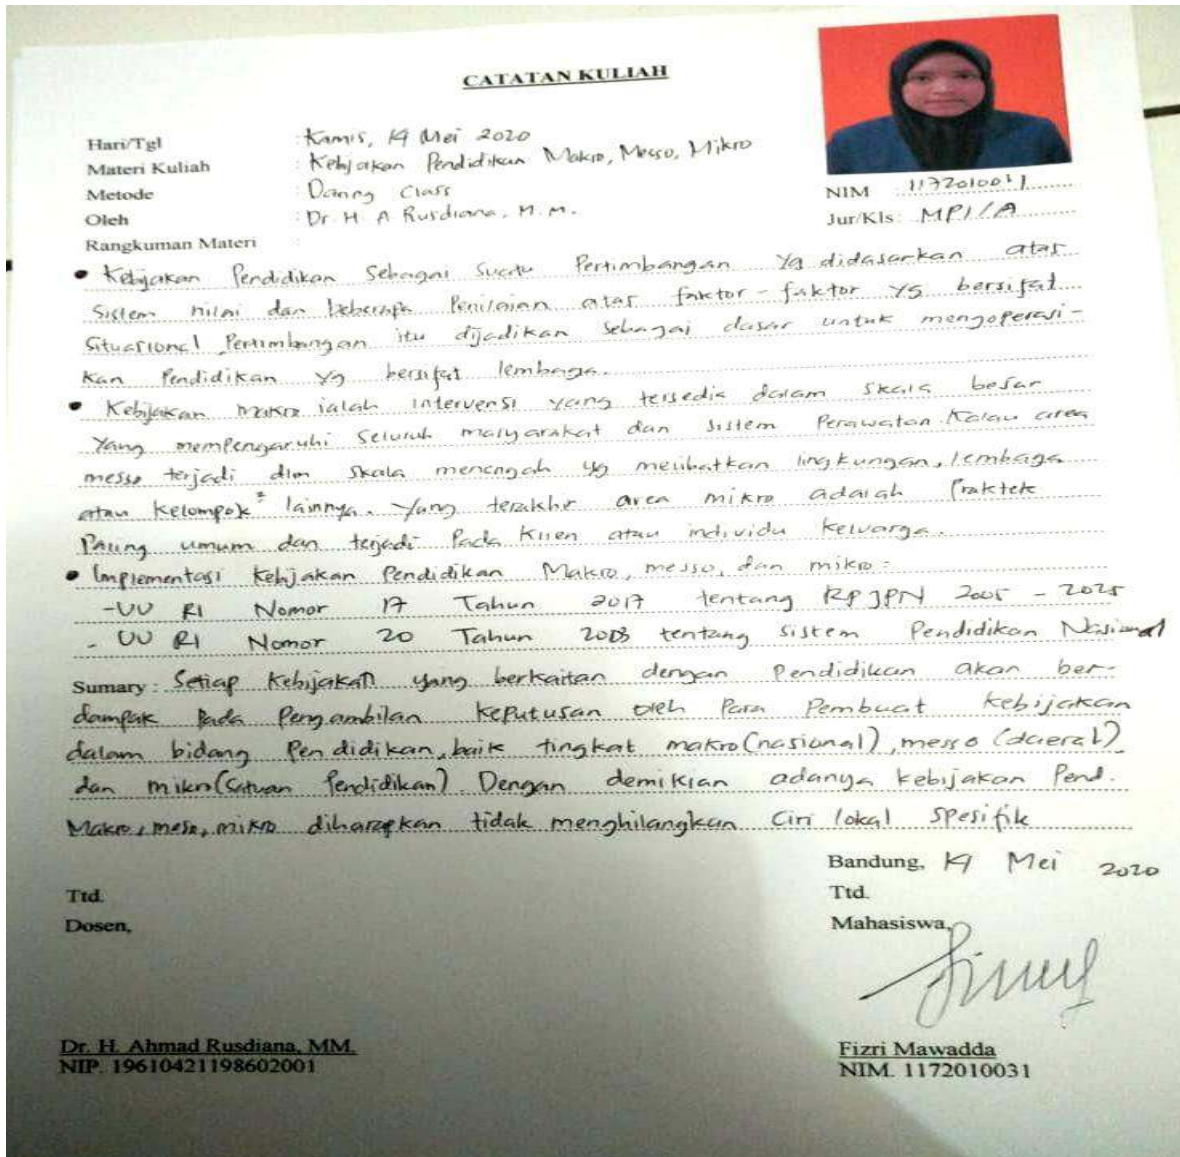 CATATAN KULIAH
Hari/Tgl : Kamis, 14 Mei 2020
Materi Kuliah : Kebijakan Pendidikan Makro, Messo, Mikro
Metode : Daring Class
Oleh : Dr. H. A Rusdiana, M.M.
NIM : 1172010031
Jur/Kls : MPI/A
Rangkuman Materi :
• Kebijakan Pendidikan Sebagai Suatu Pertimbangan Yg didasarkan atas
Sistem nilai dan beberapa Penilaian atas faktor-faktor yg bersifat
Situasional Pertimbangan itu dijadikan sebagai dasar untuk mengoperasi-
kan Pendidikan yg bersifat lembaga.
• Kebijakan makro ialah intervensi yang tersedia dalam skala besar
Yang mempengaruhi Seluruh masyarakat dan sistem Perawatan. Kalau area
messo terjadi dlm skala menengah yg melibatkan lingkungan, lembaga
atau Kelompok² lainnya. Yang terakhir area mikro adalah Praktek
Paling umum dan terjadi Pada Klien atau individu Keluarga.
• Implementasi Kebijakan Pendidikan Makro, messo, dan mikro :
- UU RI Nomor 17 Tahun 2017 tentang RPJPN 2005 - 2025
- UU RI Nomor 20 Tahun 2003 tentang sistem Pendidikan Nasional
Sumary : Setiap Kebijakan yang berkaitan dengan Pendidikan akan ber-
dampak Pada Pengambilan Keputusan oleh Para Pembuat Kebijakan
dalam bidang Pendidikan, baik tingkat makro (nasional), messo (daerah)
dan mikro (Satuan Pendidikan) Dengan demikian adanya kebijakan Pend.
Makro, meso, mikro diharapkan tidak menghilangkan Ciri lokal Spesifik
Bandung, 14 Mei 2020
Ttd. Ttd.
Dosen, Mahasiswa,
Dr. H. Ahmad Rusdiana, MM. Fizri Mawadda
NIP. 19610421198602001 NIM. 1172010031